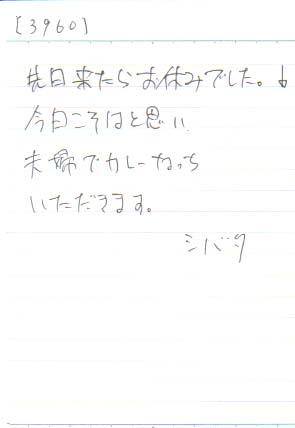 [3960]
先日来たらお休みでした。↓
今日こそはと思い
夫婦でカレーなっち
いただきます。
シバタ